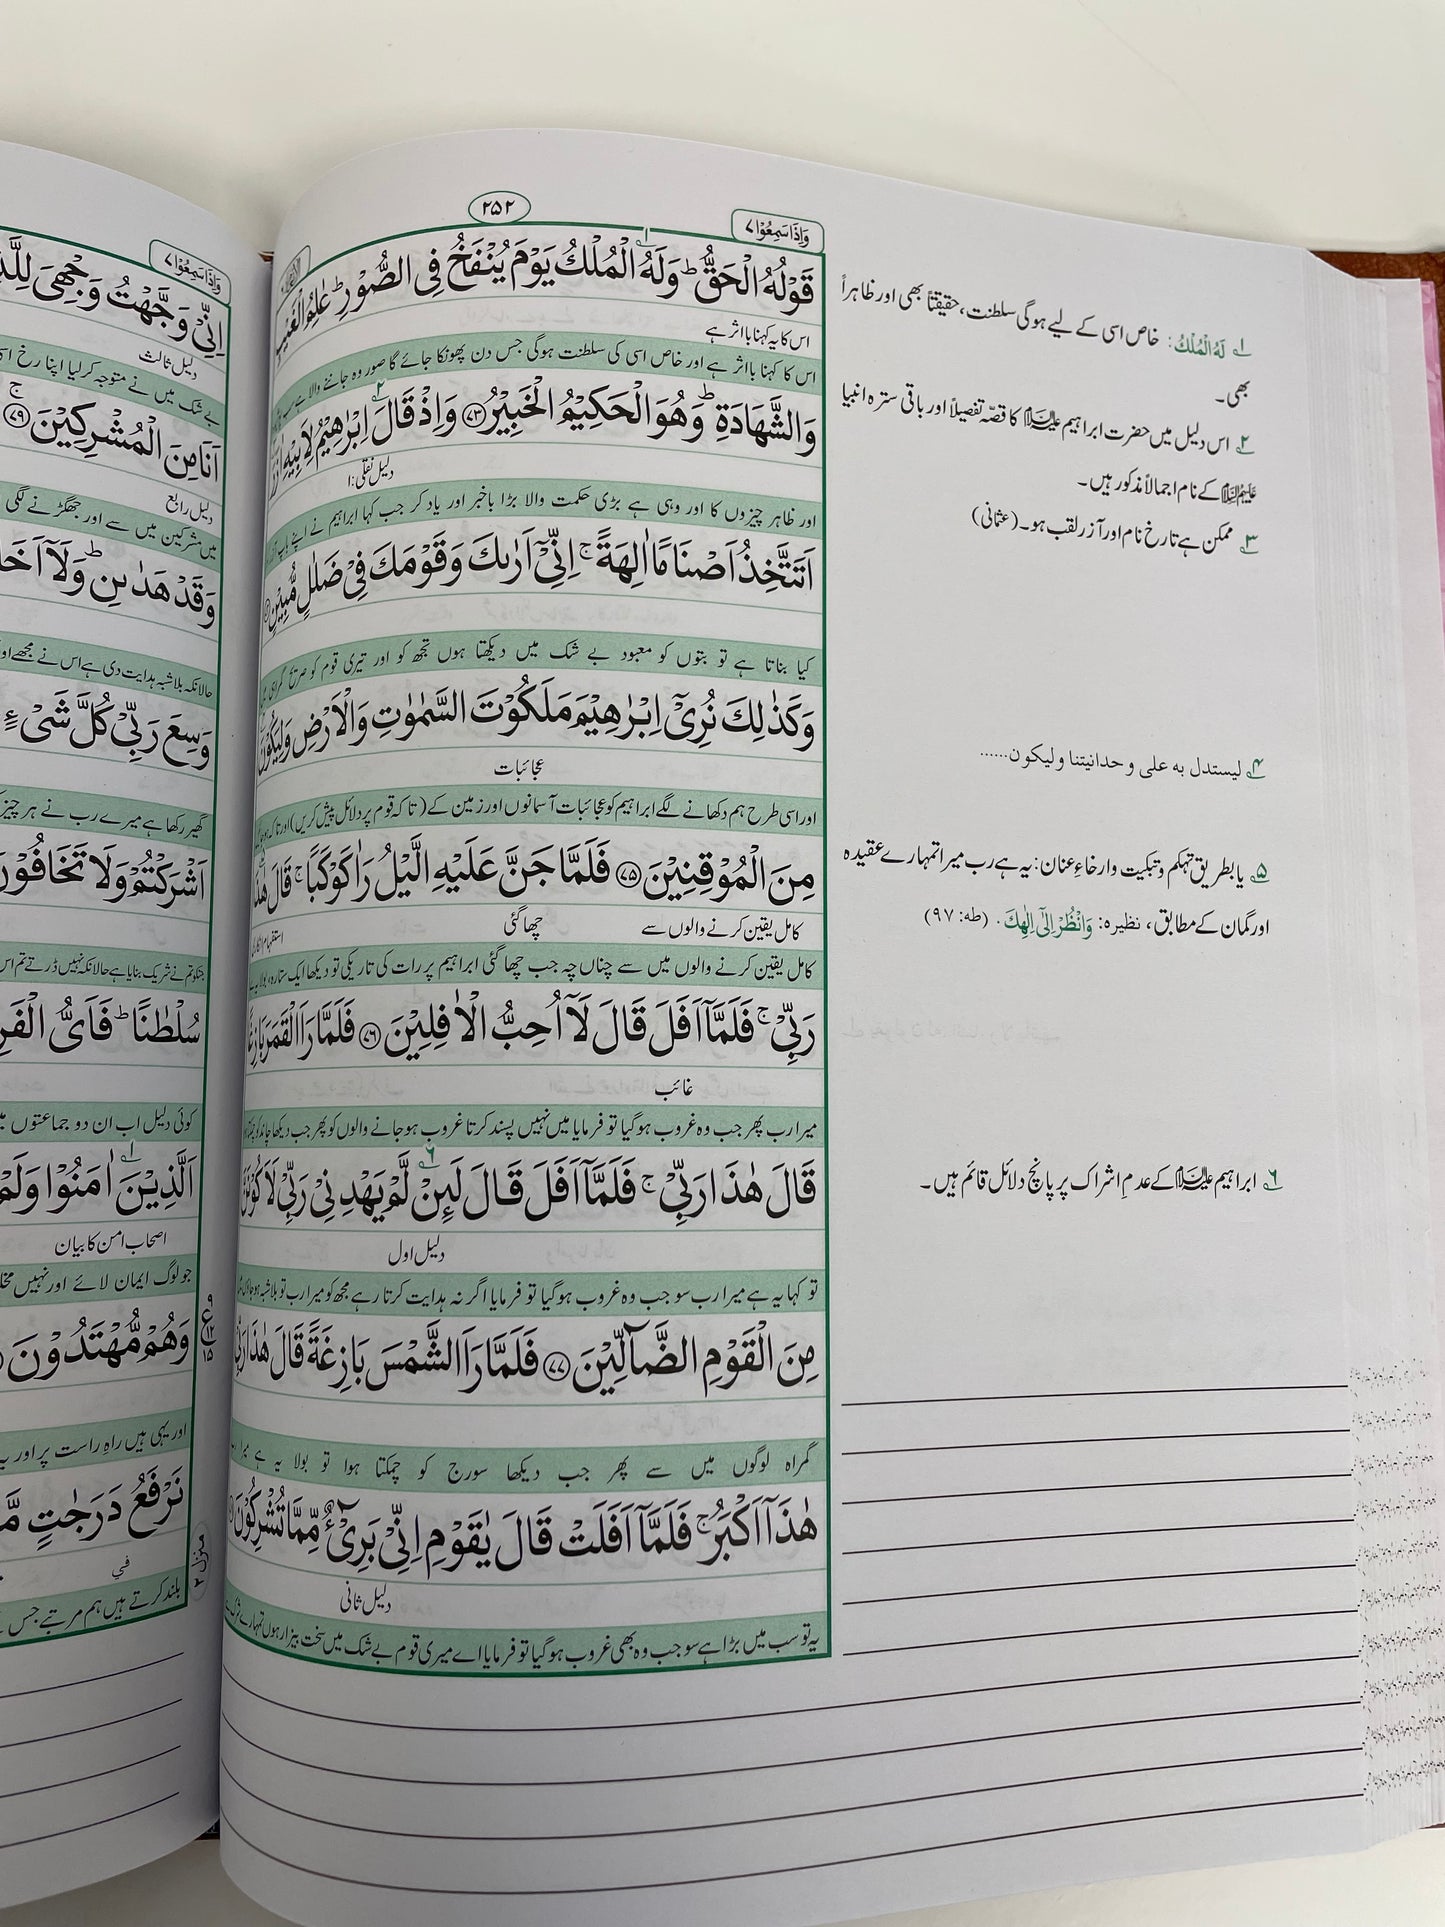 ۲۵۲
وَاِذَا سَمِعُوْا ۷
قَوْلُهُ الْحَقُّ ؕ وَلَهُ الْمُلْكُ يَوْمَ يُنْفَخُ فِى الصُّوْرِ ؕ عٰلِمُ الْغَيْبِ
اس کا یہ کہنا با اثر ہے
اس کا کہنا با اثر ہے اور خاص اسی کی سلطنت ہوگی جس دن پھونکا جائے گا صور وہ جاننے والا ہے
وَالشَّهَادَةِ ؕ وَهُوَ الْحَكِيْمُ الْخَبِيْرُ ﴿۷۳﴾ وَاِذْ قَالَ اِبْرٰهِيْمُ لِاَبِيْهِ
دلیل نقلی: ۱
اور ظاہر چیزوں کا اور وہی ہے بڑی حکمت والا بڑا باخبر اور یاد کر جب کہا ابراہیم نے اپنے باپ
اَتَتَّخِذُ اَصْنَامًا اٰلِهَةً ۚ اِنِّىْٓ اَرٰىكَ وَقَوْمَكَ فِىْ ضَلٰلٍ مُّبِيْنٍ
کیا بناتا ہے تو بتوں کو معبود بے شک میں دیکھتا ہوں تجھ کو اور تیری قوم کو صریح گمراہی
وَكَذٰلِكَ نُرِىْٓ اِبْرٰهِيْمَ مَلَكُوْتَ السَّمٰوٰتِ وَالْاَرْضِ وَلِيَكُوْنَ
عجائبات
اور اسی طرح ہم دکھانے لگے ابراہیم کو عجائبات آسمانوں اور زمین کے (تاکہ قوم پر دلائل پیش کریں) اور تاکہ
مِنَ الْمُوْقِنِيْنَ ﴿۷۵﴾ فَلَمَّا جَنَّ عَلَيْهِ الَّيْلُ رَاٰ كَوْكَبًا ۚ قَالَ هٰذَا
کامل یقین کرنے والوں سے چھا گئی
کامل یقین کرنے والوں میں سے چناں چہ جب چھا گئی ابراہیم پر رات کی تاریکی تو دیکھا ایک ستارہ، بولا
رَبِّىْ ۚ فَلَمَّآ اَفَلَ قَالَ لَآ اُحِبُّ الْاٰفِلِيْنَ ﴿۷۶﴾ فَلَمَّا رَاَ الْقَمَرَ بَازِغًا
غائب
میرا رب پھر جب وہ غروب ہوگیا تو فرمایا میں نہیں پسند کرتا غروب ہو جانے والوں کو پھر جب دیکھا چاند کو
قَالَ هٰذَا رَبِّىْ ۚ فَلَمَّآ اَفَلَ قَالَ لَئِنْ لَّمْ يَهْدِنِىْ رَبِّىْ لَاَكُوْنَنَّ
دلیل اول
تو کہا یہ ہے میرا رب سو جب وہ غروب ہوگیا تو فرمایا اگر نہ ہدایت کرتا رہے مجھ کو میرا رب تو بلاشبہ
مِنَ الْقَوْمِ الضَّآلِّيْنَ ﴿۷۷﴾ فَلَمَّا رَاَ الشَّمْسَ بَازِغَةً قَالَ هٰذَا رَبِّىْ
گمراہ لوگوں میں سے پھر جب دیکھا سورج کو چمکتا ہوا تو بولا یہ ہے
هٰذَآ اَكْبَرُ ۚ فَلَمَّآ اَفَلَتْ قَالَ يٰقَوْمِ اِنِّىْ بَرِىْٓءٌ مِّمَّا تُشْرِكُوْنَ
دلیل ثانی
یہ تو سب میں بڑا ہے سو جب وہ بھی غروب ہوگیا تو فرمایا اے میری قوم بے شک میں سخت بیزار ہوں تمہارے
۱ لَهُ الْمُلْكُ: خاص اسی کے لیے ہوگی سلطنت، حقیقتاً بھی اور ظاہراً
بھی۔
۲ اس دلیل میں حضرت ابراہیم علیہ السلام کا قصہ تفصیلاً اور باقی سترہ انبیا
علیہم السلام کے نام اجمالاً مذکور ہیں۔
۳ ممکن ہے تارخ نام اور آزر لقب ہو۔ (عثمانی)
۴ ليستدل به على وحدانيتنا وليكون......
۵ یا بطریق تہکم و تبکیت وارخاءِ عنان: یہ ہے رب میرا تمہارے عقیدہ
اور گمان کے مطابق، نظیرہ: وَانْظُرْ اِلٰٓى اِلٰهِكَ. (طه: ۹۷)
۶ ابراہیم علیہ السلام کے عدمِ اشراک پر پانچ دلائل قائم ہیں۔
وَاِذَا سَمِعُوْا ۷
اِنِّىْ وَجَّهْتُ وَجْهِىَ لِلَّذِ
دلیل ثالث
بے شک میں نے متوجہ کر لیا اپنا رخ
اَنَا مِنَ الْمُشْرِكِيْنَ ﴿۷۹﴾ ۚ
دلیل رابع
میں مشرکین میں سے اور جھگڑنے لگی
وَقَدْ هَدٰىنِ ؕ وَلَآ اَخَا
حالانکہ بلاشبہ ہدایت دی ہے اس نے مجھے اور
وَسِعَ رَبِّىْ كُلَّ شَىْءٍ
گھیر رکھا ہے میرے رب نے ہر چیز
اَشْرَكْتُمْ وَلَا تَخَافُوْنَ
سُلْطٰنًا ؕ فَاَىُّ الْفَرِ
کوئی دلیل اب ان دو جماعتوں
اَلَّذِيْنَ اٰمَنُوْا وَلَمْ
اصحاب امن کا بیان
جو لوگ ایمان لائے اور نہیں
وَهُمْ مُّهْتَدُوْنَ
اور یہی ہیں راہِ راست پر اور
نَرْفَعُ دَرَجٰتٍ مَّ
في
بلند کرتے ہیں ہم مرتبے جس
۹
ع
۱۲
۱۵
منزل ۲